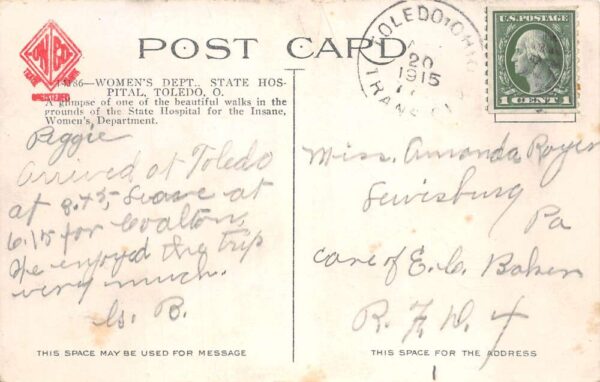 POST CARD
TOLEDO, OHIO
20
1915
TRANS
U.S. POSTAGE
1 CENT 1
TRADE
86—WOMEN'S DEPT., STATE HOS-
PITAL, TOLEDO, O.
A glimpse of one of the beautiful walks in the
grounds of the State Hospital for the Insane,
Women's Department.
Peggie
Arrived at Toledo
at 8.45, Leave at
6.15 for
We enjoyed the trip
very much.
B.
Miss. Amanda Royer
Lewisburg
Pa
care of E. C. Baker
R. F. D. 4
THIS SPACE MAY BE USED FOR MESSAGE
THIS SPACE FOR THE ADDRESS
1